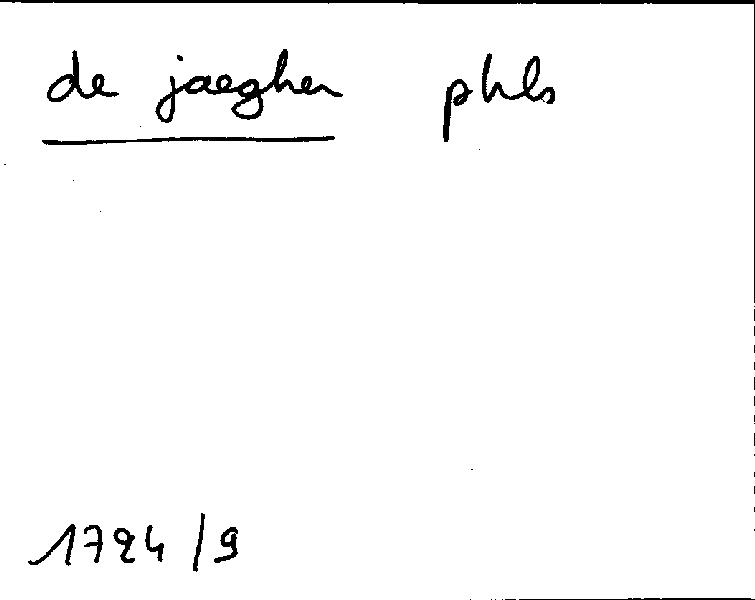 de jaegher phls
1724/9